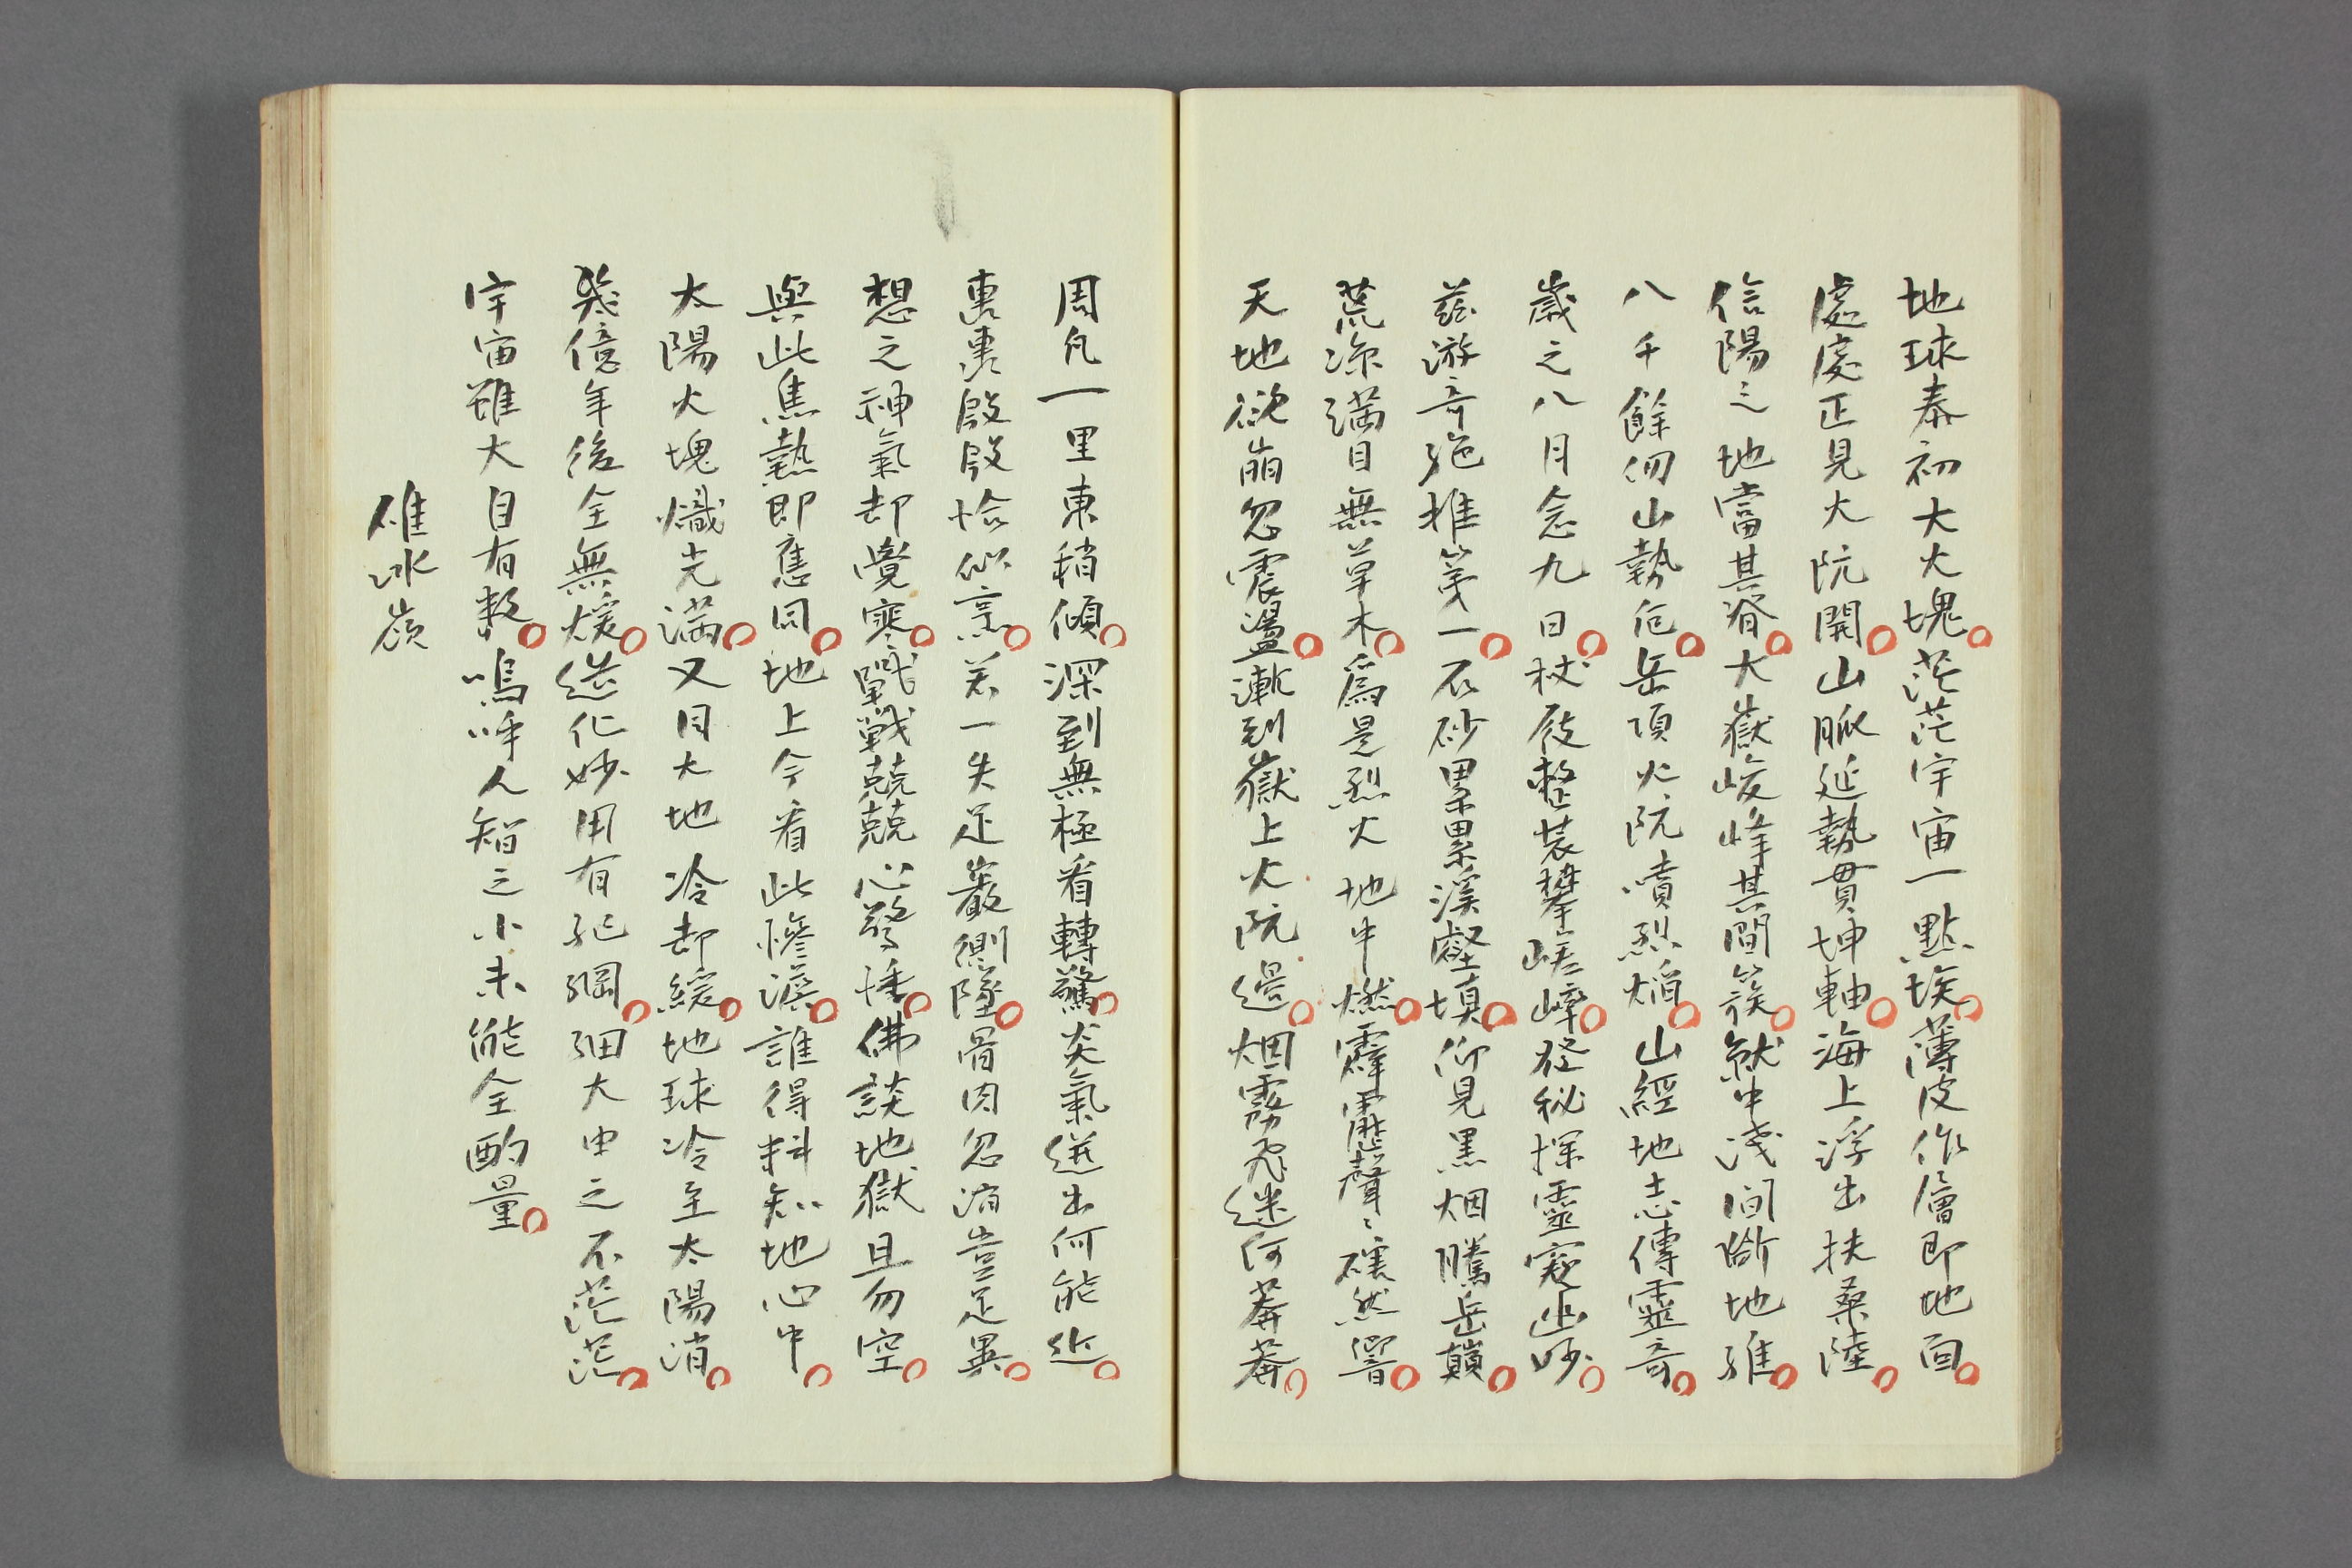 地球泰初大火塊茫茫宇宙一點埃薄皮作層即地面
處處正見大阬開山脈延勢貫坤軸海上浮出扶桑陸
信陽之地當其脊大嶽峻峰其間簇就中淺間跡地雄
八千餘仞山勢危岳頂火阬噴烈焰山經地志傳靈奇
歲之八月念九日杖屐整裝攀嵯峨發秘探靈窺幽妙
茲游奇絕推第一石砂累累溪壑填仰見黑烟騰岳巔
荒涼滿目無草木為是烈火地中燃霹靂聲〻礚然響
天地欲崩忽震盪漸到嶽上火阬邊烟霧飛迷何莽莽
周凡一里東稍傾深到無極看轉驚炎氣迸出何能近
轟轟殷殷恰似烹若一失足巖側墜骨肉忽消豈足異
想之神氣却覺寒戰戰兢兢心驚悸佛談地獄且勿空
與此焦熱即應同地上今看此慘澹誰得料知地心中
太陽火塊熾光滿又同大地冷却緩地球冷至太陽消
幾億年後全無煖造化妙用有紀綱細大由之不茫茫
宇宙雖大自有數嗚呼人智之小未能全酌量
碓冰嶺